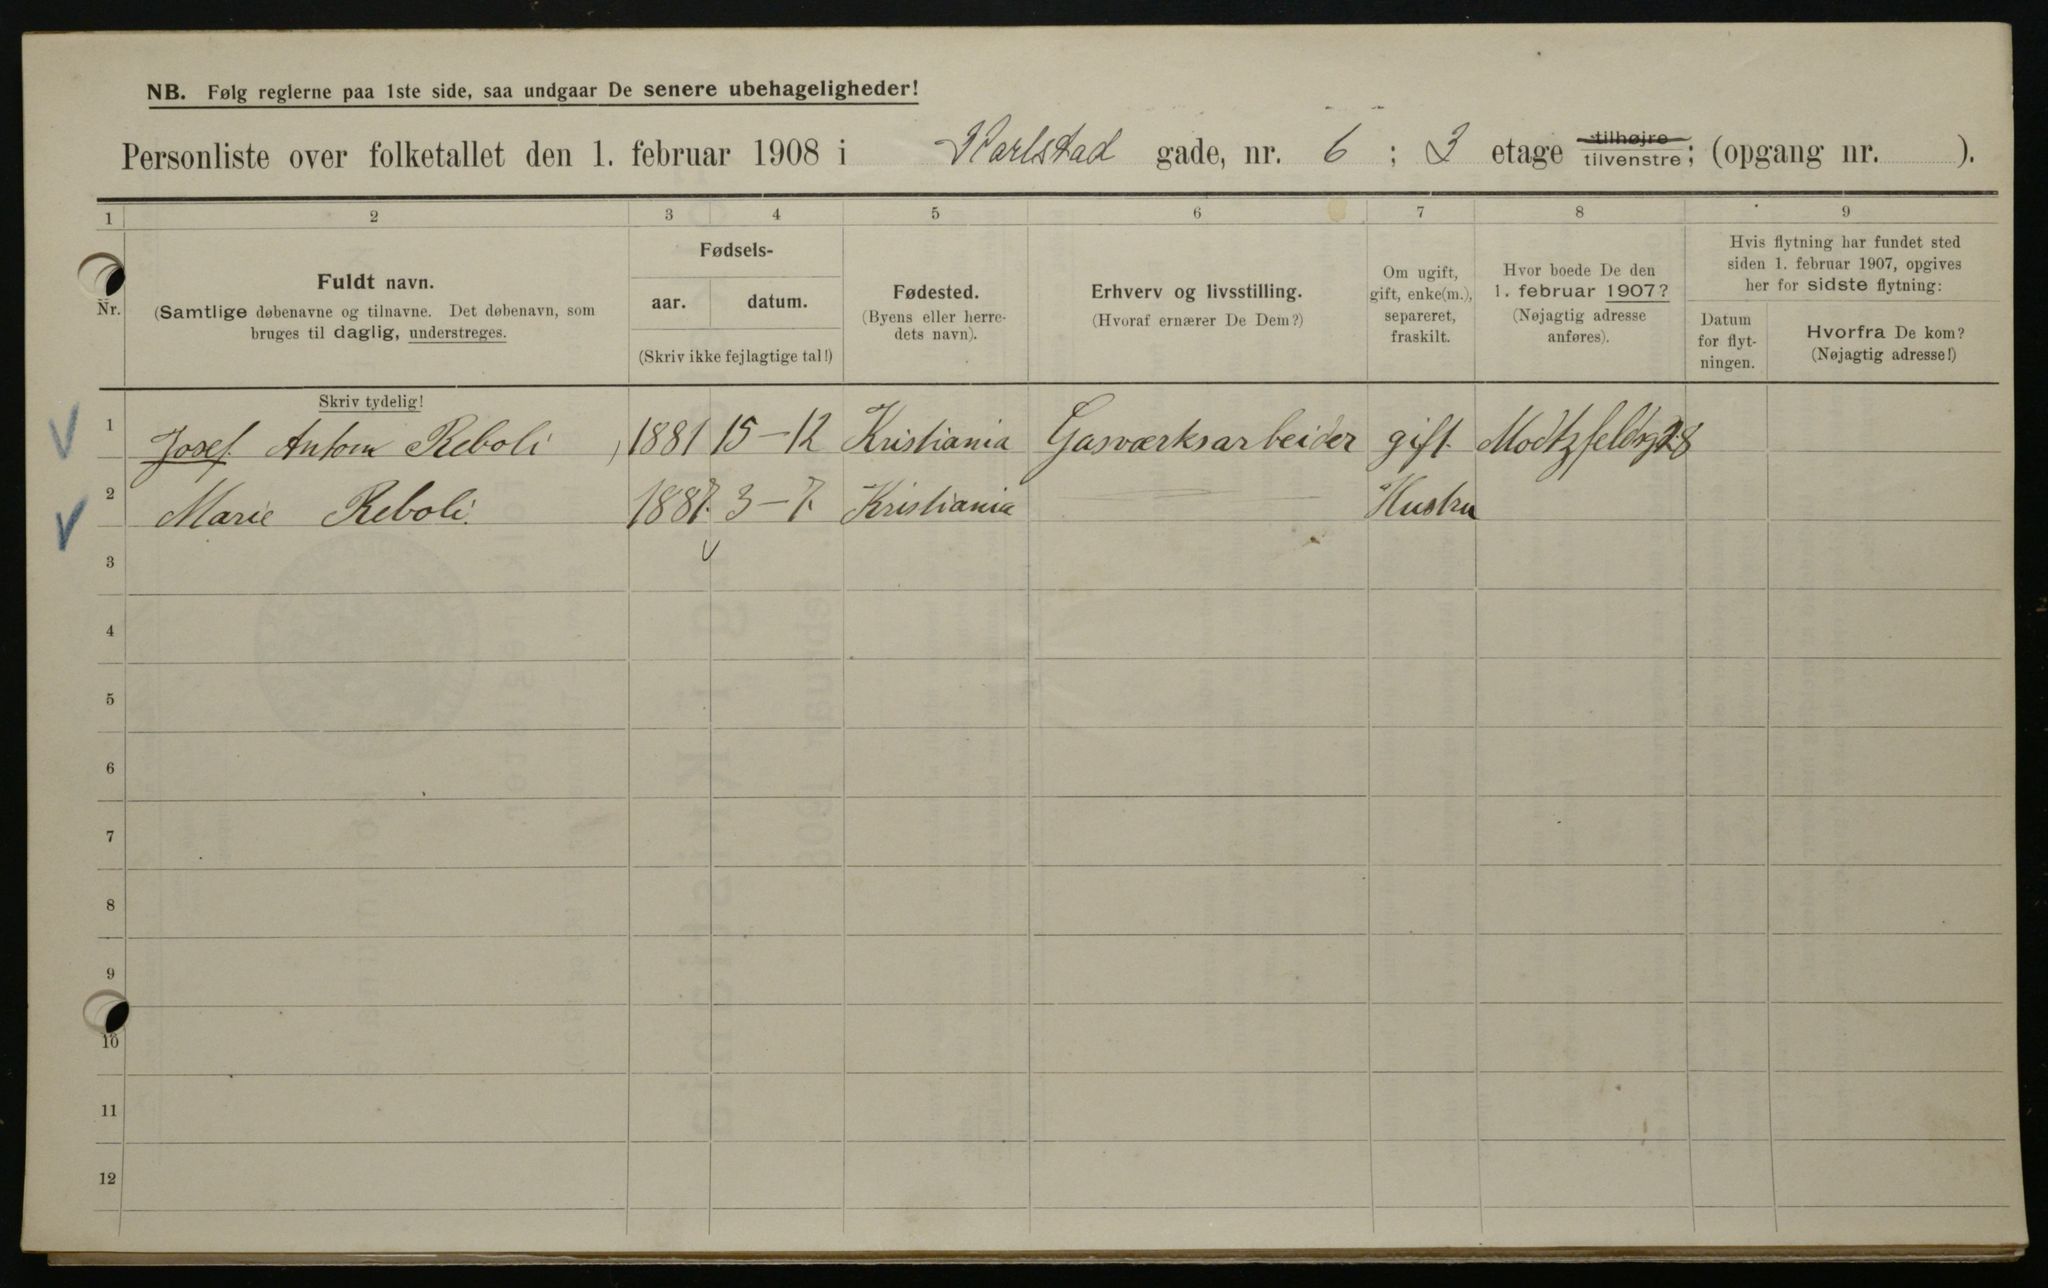 NB. Følg reglerne paa 1ste side, saa undgaar De senere ubehageligheder!
Personliste over folketallet den 1. februar 1908 i Karlstad gade, nr. 6 ; 3 etage tilhøjre tilvenstre; (opgang nr. ).
1 2 3 4 5 6 7 8 9
Nr.
Fuldt navn.
(Samtlige døbenavne og tilnavne. Det døbenavn, som
bruges til daglig, understreges.
Skriv tydelig!
Fødsels-
aar. datum.
(Skriv ikke fejlagtige tal!)
Fødested.
(Byens eller herre-
dets navn).
Erhverv og livsstilling.
(Hvoraf ernærer De Dem?)
Om ugift,
gift, enke(m.),
separeret,
fraskilt.
Hvor boede De den
1. februar 1907?
(Nøjagtig adresse
anføres).
Hvis flytning har fundet sted
siden 1. februar 1907, opgives
her for sidste flytning:
Datum
for flyt-
ningen.
Hvorfra De kom?
(Nøjagtig adresse!)
1 Josef. Anton Reboli 1881 15-12 Kristiania Gasværksarbeider gift. Modtzfeldtsg 28
2 Marie Reboli. 1887. 3-7. Kristiania Hustru
3
4
5
6
7
8
9
10
11
12